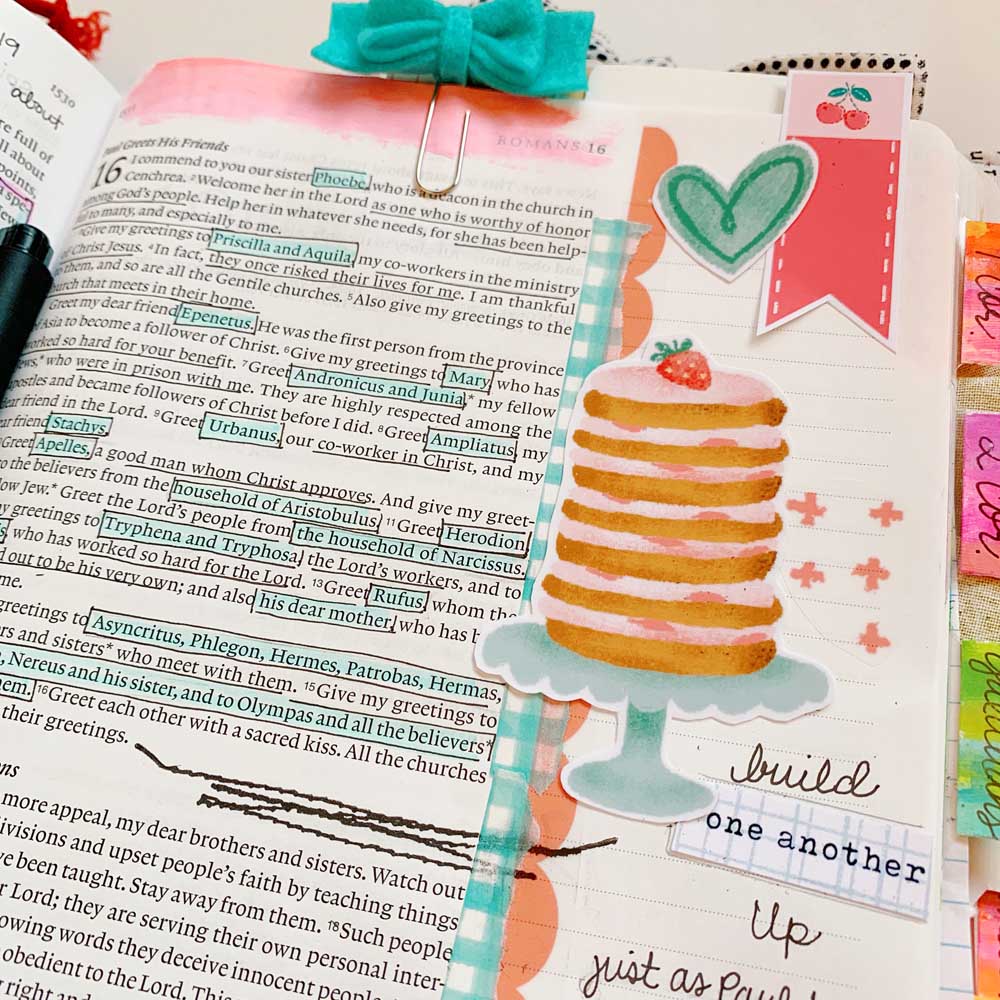 19
1530
about
re full of
ll about
points,
ROMANS 16
Paul Greets His Friends
16 I commend to you our sister Phoebe, who is a deacon in the church in
Cenchrea. 2Welcome her in the Lord as one who is worthy of honor
among God's people. Help her in whatever she needs, for she has been help-
to many, and especially to me.
Give my greetings to Priscilla and Aquila, my co-workers in the ministry
of Christ Jesus. 4In fact, they once risked their lives for me. I am thankful
them, and so are all the Gentile churches. 5Also give my greetings to the
church that meets in their home.
Greet my dear friend Epenetus. He was the first person from the province
of Asia to become a follower of Christ. 6Give my greetings to Mary, who has
worked so hard for your benefit. 7Greet Andronicus and Junia,* my fellow
Jews,* who were in prison with me. They are highly respected among the
apostles and became followers of Christ before I did. 8Greet Ampliatus, my
dear friend in the Lord. 9Greet Urbanus, our co-worker in Christ, and my
dear friend Stachys.
Greet Apelles, a good man whom Christ approves. And give my greet-
to the believers from the household of Aristobulus. 11Greet Herodion,
low Jew.* Greet the Lord's people from the household of Narcissus.
my greetings to Tryphena and Tryphosa, the Lord's workers, and to
who has worked so hard for the Lord. 13Greet Rufus, whom the
out to be his very own; and also his dear mother, who has b
me.
greetings to Asyncritus, Phlegon, Hermes, Patrobas, Hermas,
ers and sisters* who meet with them. 15Give my greetings to
Nereus and his sister, and to Olympas and all the believers*
hem. 16Greet each other with a sacred kiss. All the churches
their greetings.
ons
more appeal, my dear brothers and sisters. Watch out
divisions and upset people's faith by teaching things
ve been taught. Stay away from them. 18Such people
r Lord; they are serving their own personal inter-
owing words they deceive innocent people
obedient to the Lord. This
right and
build
one another
Up
just as Paul
1 Cor.
2 Cor.
galatians